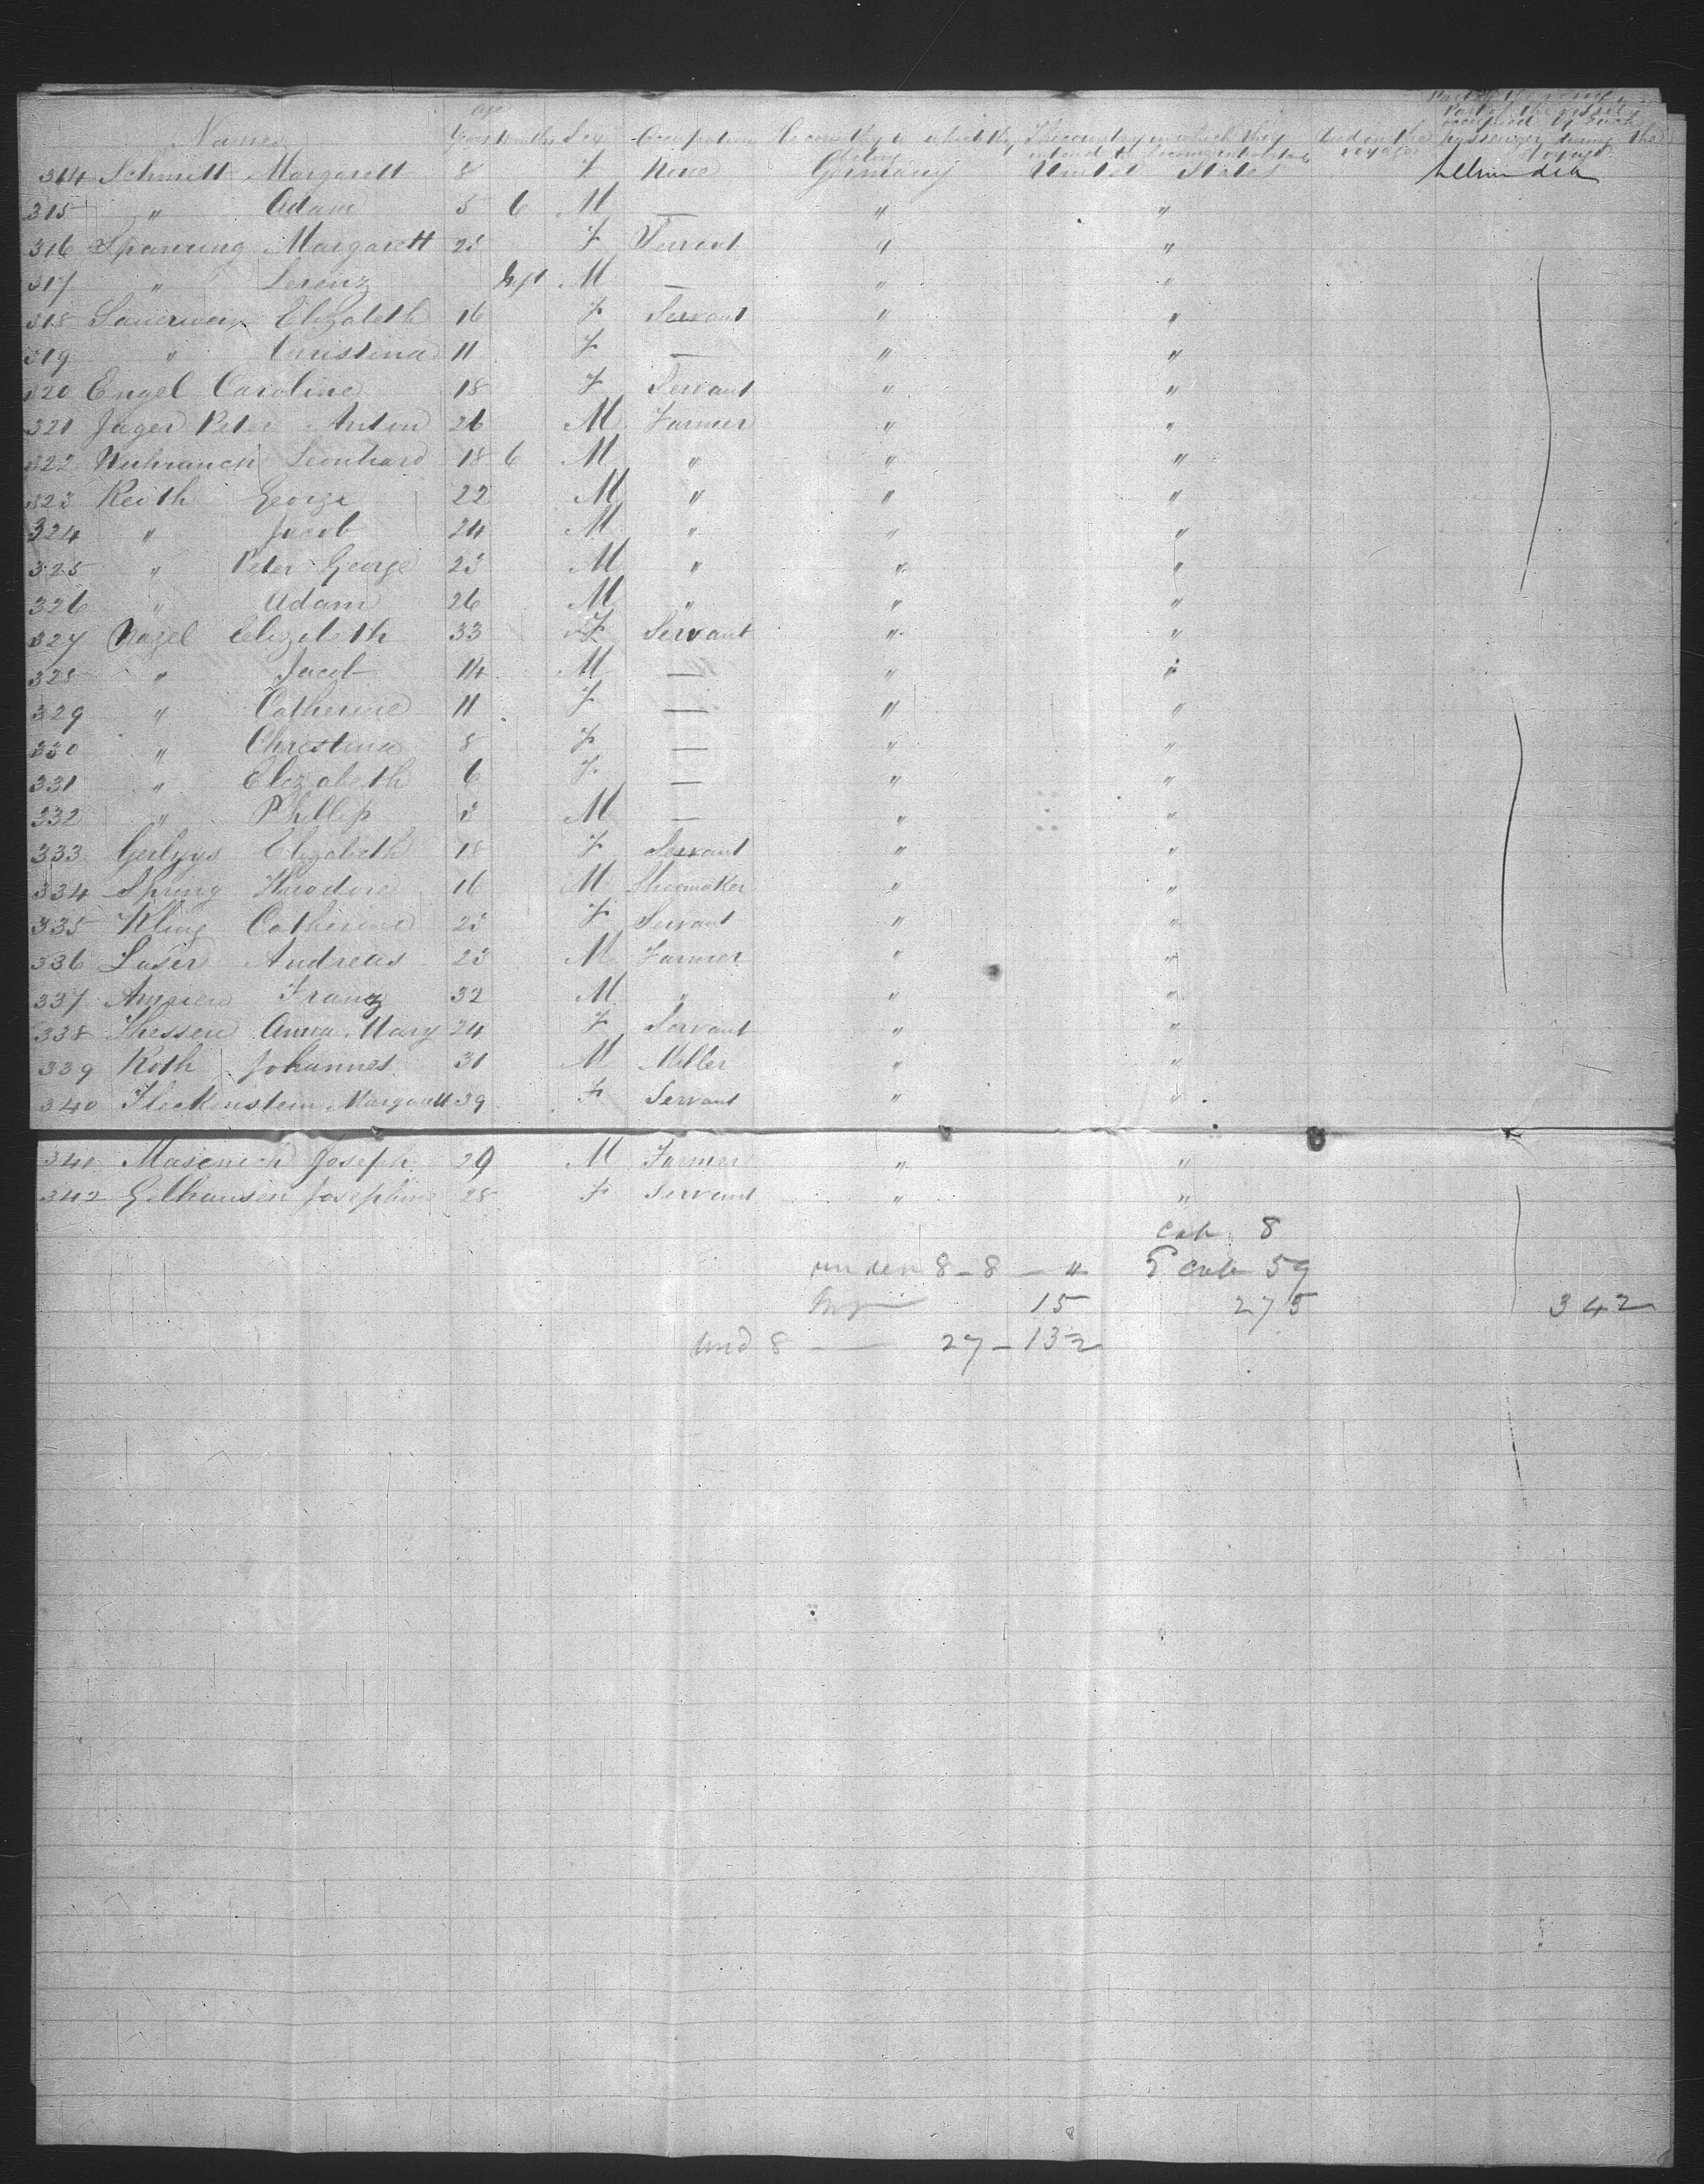 Part of the vessel
occupied by each
age
Names Years Months Sex Occupation The country to which they The country in which they died on the passenger during the
belong intend to become inhabitants voyage voyage
314 Schmitt Margarett 8 F None Germany United States
315 " Adam 5 6 M — " "
316 Spanning Margarett 25 F Servant " "
317 " Lorenz Inft M — " "
318 Elizabeth 16 F Servant " "
319 " Christina 11 F — " "
320 Engel Caroline 18 F Servant " "
321 Jager Peter Anton 26 M Farmer " "
322 Leonhard 18 6 M " " "
323 Keith George 22 M " " "
324 " Jacob 24 M " " "
325 " Peter George 23 M " " "
326 " Adam 26 M " " "
327 Nagel Elizabeth 33 F Servant " "
328 " Jacob 14 M — " "
329 " Catherine 11 F — " "
330 " Christina 8 F — " "
331 " Elizabeth 6 F — " "
332 " Phillip 3 M — " "
333 Elizabeth 18 F Servant " "
334 Spring Theodore 16 M Shoemaker " "
335 Kling Catherine 25 F Servant " "
336 Laser Andreas 23 M Farmer " "
337 Franz 32 M " " "
338 Thessen Anna Mary 24 F Servant " "
339 Roth Johannes 31 M Miller " "
340 Fleckenstein Margarett 39 F Servant " "
341 Joseph 29 M Farmer " "
342 Gelhausen Josephine 28 F Servant " "
cab 8
under 8 - 8 — " 2 cab 59
15 275 342
und 8 — 27 - 132